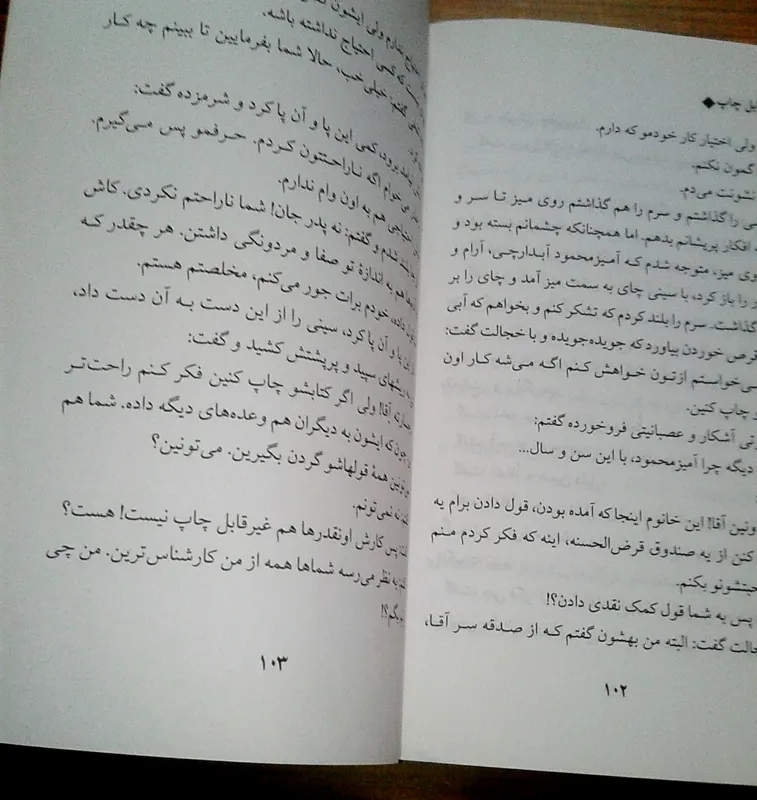 چاپ ◆
ولی اختیار کار خودمو که دارم.
گمون نکنم.
نشونت می‌دم.
را گذاشتم و سرم را هم گذاشتم روی میز تا سر و
افکار پریشانم بدهم. اما همچنانکه چشمانم بسته بود و
میز، متوجه شدم که آمیزمحمود آبدارچی، آرام و
را باز کرد، با سینی چای به سمت میز آمد و چای را بر
گذاشت. سرم را بلند کردم که تشکر کنم و بخواهم که آبی
قرص خوردن بیاورد که جویده‌جویده و با خجالت گفت:
می‌خواستم ازتون خواهش کنم اگه می‌شه کار اون
چاپ کنین.
آشکار و عصبانیتی فروخورده گفتم:
دیگه چرا آمیزمحمود، با این سن و سال...
آقا! این خانوم اینجا که آمده بودن، قول دادن برام یه
کنن از یه صندوق قرض‌الحسنه، اینه که فکر کردم منم
بکنم.
پس به شما قول کمک نقدی دادن؟!
گفت: البته من بهشون گفتم که از صدقه سر آقا،
۱۰۲
ندارم ولی ایشون
که کسی احتیاج نداشته باشه.
گفتم: خیلی خب، حالا شما بفرمایین تا ببینم چه کار
برود، کمی این پا و آن پا کرد و شرمزده گفت:
می‌خوام اگه ناراحتتون کردم. حرفمو پس می‌گیرم.
احتیاجی هم به اون وام ندارم.
بلند شدم و گفتم: نه پدر جان! شما ناراحتم نکردی. کاش
هم به اندازۀ تو صفا و مردونگی داشتن. هر چقدر که
داده، خودم برات جور می‌کنم، مخلصتم هستم.
این پا و آن پا کرد، سینی را از این دست به آن دست داد،
ریشهای سپید و پرپشتش کشید و گفت:
آقا! ولی اگر کتابشو چاپ کنین فکر کنم راحت‌تر
چون که ایشون به دیگران هم وعده‌های دیگه داده. شما هم
همۀ قولهاشو گردن بگیرین. می‌تونین؟
نه نمی‌تونم.
پس کارش اونقدرها هم غیرقابل چاپ نیست! هست؟
به نظر می‌رسه شماها همه از من کارشناس‌ترین. من چی
بگم؟!
۱۰۳